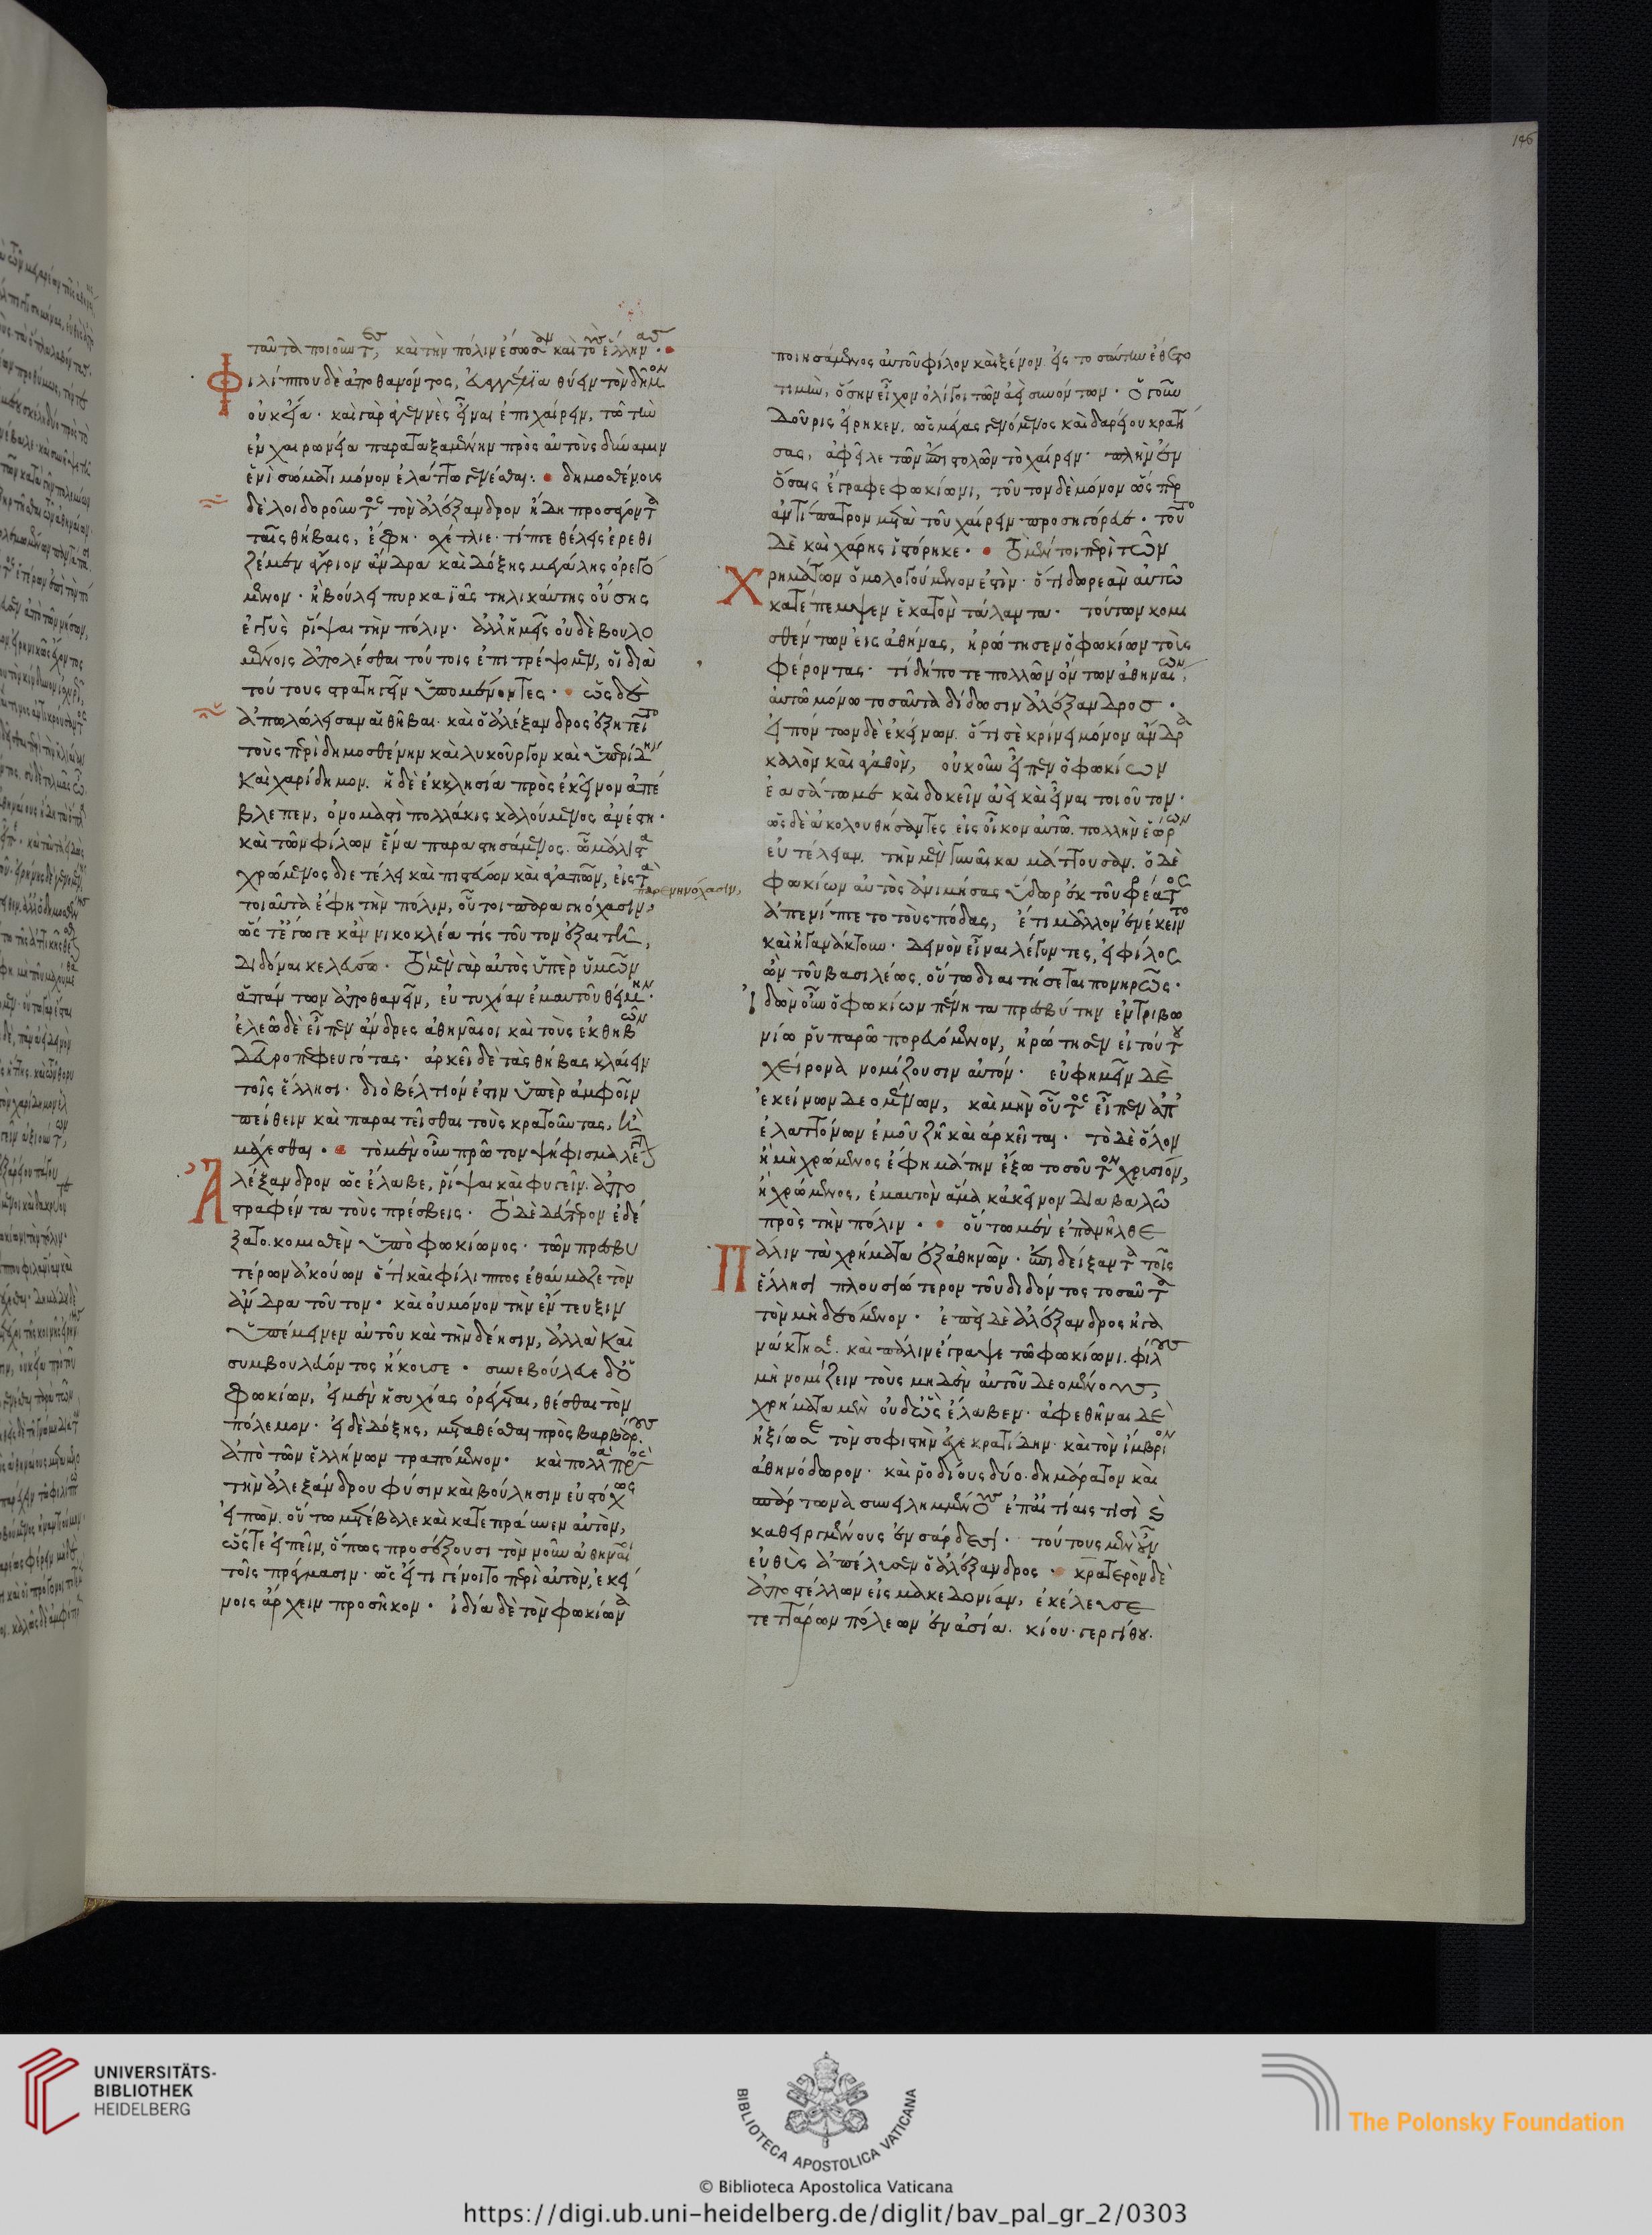 146
ταῦτα ποιοῦντες, καὶ τὴν πόλιν ἔσωσαν καὶ τοὺς ἕλληνας.
Φιλίππου δὲ ἀποθανόντος, εὐαγγέλια θύειν τὸν δῆμον
οὐκ εἴα· καὶ γὰρ ἀγεννὲς εἶναι ἐπιχαίρειν, τῶ τὴν
ἐν χαιρωνεία παραταξαμένην πρὸς αὐτοὺς δύναμιν
ἑνὶ σώματι μόνον ἐλάττω γενέσθαι· δημοσθένους
δὲ λοιδοροῦντος τὸν ἀλέξανδρον ἤδη προσάγοντα
ταῖς θήβαις, ἔφη· σχέτλιε· τίπτε θέλεις ἐρεθι
ζέμεν ἄγριον ἄνδρα καὶ δόξης μεγάλης ὀρεγό
μενον· ἢ βούλει πυρκαϊᾶς τηλικαύτης οὔσης
ἐγγὺς ῥίψαι τὴν πόλιν· ἀλλ' ἡμεῖς οὐδὲ βουλο
μένοις ἀπολέσθαι τούτοις ἐπιτρέψομεν, οἱ διὰ
τούτους στρατηγεῖν ὑπομένοντες· ὡς δὲ
ἀπωλώλεσαν αἱ θῆβαι· καὶ ὁ ἀλέξανδρος ἐξητεῖτο
τοὺς περὶ δημοσθένην καὶ λυκοῦργον καὶ ὑπερίδην
καὶ χαρίδημον. ἡ δὲ ἐκκλησία πρὸς ἐκεῖνον ἀπέ
βλεπεν, ὀνομαστὶ πολλάκις καλούμενος ἀνέστη·
καὶ τῶν φίλων ἕνα παραστησάμενος. ὧ μάλιστα
χρώμενος διετέλει καὶ πιστεύων καὶ ἀγαπῶν, εἰς τοι
αῦτα ἔφη τὴν πόλιν, οὗτοι παραγηόχασιν,
παρενηνόχασιν,
ὡς τ' ἔγωγε κἂν νικοκλέα τίς τοῦτον ἐξαιτῆ,
διδόναι κελεύσω. ἐγὼ μὲν γὰρ αὐτὸς ὑπὲρ ὑμῶν
ἁπάντων ἀποθανεῖν, εὐτυχίαν ἐμαυτοῦ θείμην·
ἐλεῶ δὲ εἶπεν ἄνδρες ἀθηναῖοι καὶ τοὺς ἐκ θηβῶν
δεῦρο πεφευγότας· ἀρκεῖ δὲ τὰς θήβας κλαίειν
τοῖς ἕλλησι· διὸ βέλτιόν ἐστιν ὑπὲρ ἀμφοῖν
πείθειν καὶ παραιτεῖσθαι τοὺς κρατοῦντας, ἢ
μάχεσθαι· τὸ μὲν οὖν πρῶτον ψήφισμα λέγεται
Ἀλέξανδρον ὡς ἔλαβε, ῥίψαι καὶ φυγεῖν. ἀπο
στραφέντα τοὺς πρέσβεις· τὸ δὲ δεύτερον ἐδέ
ξατο. κομισθὲν ὑπὸ φωκίωνος· τῶν πρεσβυ
τέρων ἀκούων ὅτι καὶ φίλιππος ἐθαύμαζε τὸν
ἄνδρα τοῦτον· καὶ οὐ μόνον τὴν ἔντευξιν
ὑπέμεινεν αὐτοῦ καὶ τὴν δέησιν, ἀλλὰ καὶ
συμβουλεύοντος ἤκουσε· συνεβούλευε δὲ ὁ
φωκίων, εἰ μὲν ἡσυχίας ὀρέγεται, θέσθαι τὸν
πόλεμον· εἰ δὲ δόξης, μεταθέσθαι πρὸς βαρβάρους
ἀπὸ τῶν ἑλλήνων τραπόμενον· καὶ πολλὰ πρὸς
τὴν ἀλεξάνδρου φύσιν καὶ βούλησιν εὐστόχως
εἰπών. οὕτω μετέβαλε καὶ κατεπράϋνεν αὐτὸν,
ὥστε εἰπεῖν, ὅπως προσέξουσι τὸν νοῦν ἀθηναῖοι
τοῖς πράγμασιν· ὡς εἴ τι γένοιτο περὶ αὐτὸν, ἐκεί
νοις ἄρχειν προσῆκον· ἰδία δὲ τὸν φωκίωνα
ποιησάμενος αὐτοῦ φίλον καὶ ξένον εἰς τοσαύτην ἔθετο
τιμὴν, ὅσην εἶχον ὀλίγοι τῶν ἀεὶ συνόντων· ὁ γοῦν
Δοῦρις εἴρηκεν. ὡς μέγας γενόμενος καὶ δαρείου κρατή
σας, ἀφεῖλε τῶν ἐπιστολῶν τὸ χαίρειν· πλὴν ἐν
ὅσαις ἔγραφε φωκίωνι, τοῦτον δὲ μόνον ὥσπερ
ἀντίπατρον μετὰ τοῦ χαίρειν προσηγόρευε· τοῦτο
δὲ καὶ χάρης ἱστόρηκε· τὸ μέντοι περὶ τῶν
Χρημάτων ὁμολογούμενόν ἐστιν· ὅτι δωρεὰν αὐτῶ
κατέπεμψεν ἑκατὸν τάλαντα· τούτων κομι
σθέντων εἰς ἀθήνας, ἠρώτησεν ὁ φωκίων τοὺς
φέροντας· τί δήποτε πολλῶν ὄντων ἀθηναίων,
αὐτῶ μόνω τοσαῦτα δίδωσιν ἀλέξανδρος·
εἰπόντων δὲ ἐκείνων. ὅτι σὲ κρίνει μόνον ἄνδρα
καλὸν καὶ ἀγαθὸν, οὐκοῦν εἶπεν ὁ φωκίων
ἐασάτω με καὶ δοκεῖν ἀεὶ καὶ εἶναι τοιοῦτον·
ὡς δὲ ἀκολουθήσαντες εἰς οἶκον αὐτῶ. πολλὴν ἑώρων
εὐτέλειαν. τὴν μὲν γυναῖκα μάττουσαν. ὁ δὲ
φωκίων αὐτὸς ἀνιμήσας ὕδωρ ἐκ τοῦ φρέατος
ἀπενίπτετο τοὺς πόδας, ἔτι μᾶλλον ἐνέκειντο
καὶ ἠγανάκτουν· δεινὸν εἶναι λέγοντες, εἰ φίλος
ὢν τοῦ βασιλέως. οὕτω διαιτήσεται πονηρῶς·
Ἰδὼν οὖν ὁ φωκίων πένητα πρεσβύτην ἐν τριβω
νίω ῥυπαρῶ πορευόμενον, ἠρώτησεν εἰ τούτου
χείρονα νομίζουσιν αὐτόν· εὐφημεῖν δὲ
ἐκείνων δεομένων, καὶ μὴν οὗτος εἶπεν ἀπ'
ἐλαττόνων ἐμοῦ ζῆ καὶ ἀρκεῖται· τὸ δὲ ὅλον
ἢ μὴ χρώμενος ἔφη μάτην ἕξω τοσοῦτον χρυσίον,
ἢ χρώμενος, ἐμαυτὸν ἅμα κἀκεῖνον διαβαλῶ
πρὸς τὴν πόλιν· οὕτω μὲν ἐπανῆλθε
Πάλιν τὰ χρήματα ἐξ ἀθηνῶν· ἐπιδείξαντα τοῖς
ἕλλησι πλουσιώτερον τοῦ διδόντος τοσαῦτα
τὸν μὴ δεόμενον· ἐπεὶ δὲ ἀλέξανδρος ἠγα
νάκτησε. καὶ πάλιν ἔγραψε τῶ φωκίωνι. φίλους
μὴ νομίζειν τοὺς μηδὲν αὐτοῦ δεομένους,
χρήματα μὲν οὐδ' ὣς ἔλαβεν· ἀφεθῆναι δὲ
ἠξίωσε τὸν σοφιστὴν ἐχεκρατίδην· καὶ τὸν ἴμβριον
ἀθηνόδωρον· καὶ ῥοδίους δύο. δημάρατον καὶ
σπάρτωνα συνειλημμένους ἐπ' αἰτίαις τισὶ καὶ
καθειργμένους ἐν σάρδεσι· τούτους μὲν οὖν
εὐθὺς ἀπέλυσεν ὁ ἀλέξανδρος· κρατερὸν δὲ
ἀποστέλλων εἰς μακεδονίαν, ἐκέλευσε
τεττάρων πόλεων ἐν ἀσία. κίου· γεργίθου.
UNIVERSITÄTS-
BIBLIOTHEK
HEIDELBERG
BIBLIOTECA APOSTOLICA VATICANA
The Polonsky Foundation
© Biblioteca Apostolica Vaticana
https://digi.ub.uni-heidelberg.de/diglit/bav_pal_gr_2/0303